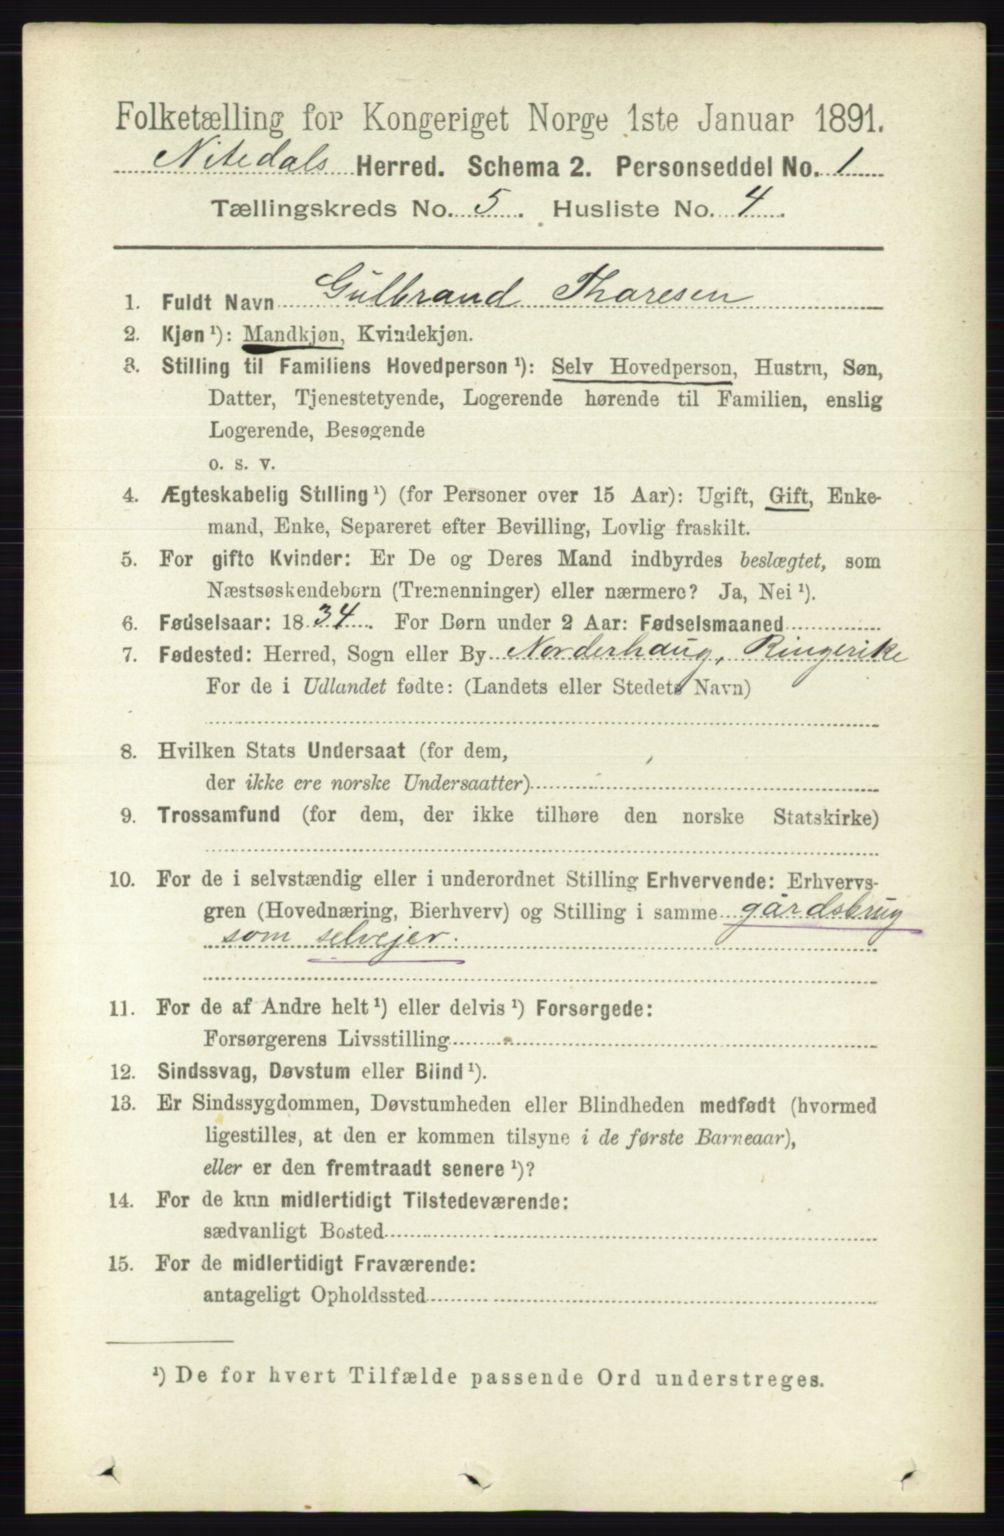 Folketælling for Kongeriget Norge 1ste Januar 1891.
Nitedals Herred. Schema 2. Personseddel No. 1
Tællingskreds No. 5. Husliste No. 4.
1. Fuldt Navn Gulbrand Tharesen
2. Kjøn¹): Mandkjøn, Kvindekjøn.
3. Stilling til Familiens Hovedperson¹): Selv Hovedperson, Hustru, Søn,
Datter, Tjenestetyende, Logerende hørende til Familien, enslig
Logerende, Besøgende
o. s. v.
4. Ægteskabelig Stilling¹) (for Personer over 15 Aar): Ugift, Gift, Enke-
mand, Enke, Separeret efter Bevilling, Lovlig fraskilt.
5. For gifte Kvinder: Er De og Deres Mand indbyrdes beslægtet, som
Næstsøskendebørn (Tremenninger) eller nærmere? Ja, Nei¹).
6. Fødselsaar: 1834. For Børn under 2 Aar: Fødselsmaaned
7. Fødested: Herred, Sogn eller By Norderhaug, Ringerike
For de i Udlandet fødte: (Landets eller Stedets Navn)
8. Hvilken Stats Undersaat (for dem,
der ikke ere norske Undersaatter)
9. Trossamfund (for dem, der ikke tilhøre den norske Statskirke)
10. For de i selvstændig eller i underordnet Stilling Erhvervende: Erhvervs-
gren (Hovednæring, Bierhverv) og Stilling i samme gårdsbrug
som selvejer.
11. For de af Andre helt¹) eller delvis¹) Forsørgede:
Forsørgerens Livsstilling
12. Sindssvag, Døvstum eller Blind¹).
13. Er Sindssygdommen, Døvstumheden eller Blindheden medfødt (hvormed
ligestilles, at den er kommen tilsyne i de første Barneaar),
eller er den fremtraadt senere¹)?
14. For de kun midlertidigt Tilstedeværende:
sædvanligt Bosted
15. For de midlertidigt Fraværende:
antageligt Opholdssted
¹) De for hvert Tilfælde passende Ord understreges.